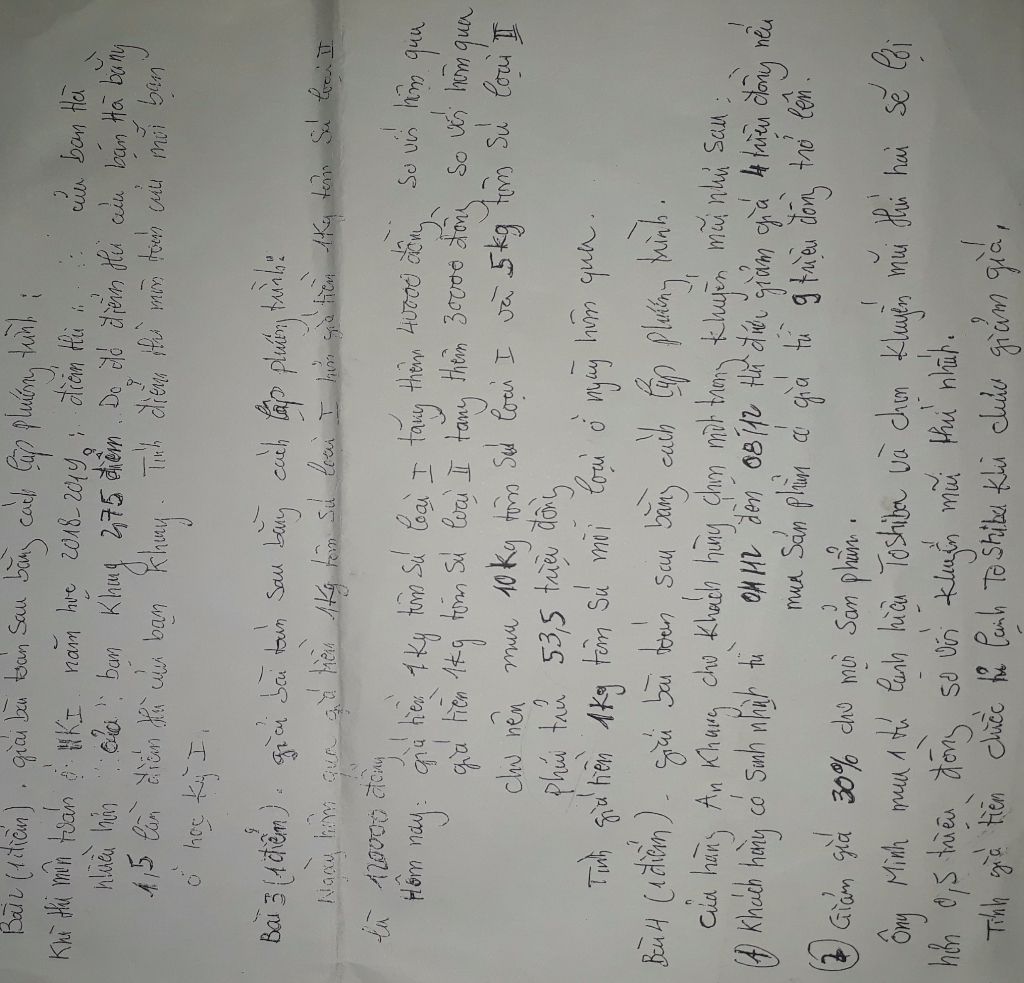 Bài 2 (1 điểm). giải bài toán sau bằng cách lập phương trình:
Khi thi môn toán ở HKI năm học 2018-2019, điểm thi của bạn Hà
nhiều hơn của bạn Khung 2,75 điểm. Do đó điểm thi của bạn Hà bằng
1,5 lần điểm thi của bạn Khung. Tính điểm thi môn toán của mỗi bạn
ở học kỳ I.
Bài 3 (1 điểm). giải bài toán sau bằng cách lập phương trình:
Ngày hôm qua giá tiền 1kg tôm sú loại I hơn giá tiền 1kg tôm sú loại II
là 120000 đồng
Hôm nay: giá tiền 1kg tôm sú loại I tăng thêm 40000 đồng so với hôm qua
giá tiền 1kg tôm sú loại II tăng thêm 30000 đồng so với hôm qua
cho nên mua 10kg tôm sú loại I và 5kg tôm sú loại II
phải trả 53,5 triệu đồng
Tính giá tiền 1kg tôm sú mỗi loại ở ngày hôm qua.
Bài 4 (1 điểm). giải bài toán sau bằng cách lập phương trình.
Cửa hàng An Khang cho khách hàng chọn một trong khuyến mãi như sau:
(1) Khách hàng có sinh nhật từ 01/12 đến 08/12 thì được giảm giá 4 triệu đồng nếu
mua sản phẩm có giá từ 9 triệu đồng trở lên.
(2) Giảm giá 30% cho mọi sản phẩm.
Ông Minh mua 1 tủ lạnh hiệu Toshiba và chọn khuyến mãi thứ hai sẽ lợi
hơn 0,5 triệu đồng so với khuyến mãi thứ nhất.
Tính giá tiền chiếc tủ lạnh Toshiba khi chưa giảm giá.